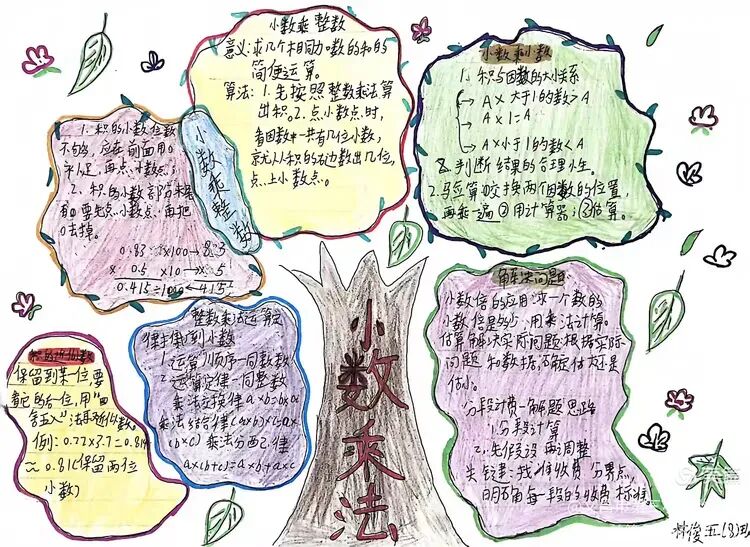 小数乘整数
意义:求几个相同加数的和的
简便运算。
算法:1.先按照整数乘法算
出积。2.点小数点时,
看因数中一共有几位小数,
就从积的右边数出几位,
点上小数点。
小数乘整数
1.积的小数位数
不够,应在前面用0
补足,再点小数点;
2.积的小数部分末尾
有0要先点小数点,再把
0去掉。
0.83 ×100→83
× 0.5 ×10→× 5
0.415÷1000←415
小数乘小数
1、积与因数的大小关系
A×大于1的数>A
A×1=A
A×小于1的数<A
2.判断结果的合理性。
2.验算:①交换两个因数的位置,
再乘一遍②用计算器;③估算。
积的近似数
保留到某一位,要
看它的后一位,用"四
舍五入"法取近似数。
例:0.77×7.7=0.814
≈0.81(保留两位
小数)
整数乘法运算定
律推广到小数
1.运算顺序一同整数
2.运算定律一同整数
乘法交换律a×b=b×a
乘法结合律(a×b)×c=a×
(b×c) 乘法分配律
a×(b+c)=a×b+a×c
小数乘法
解决问题
小数倍的应用:求一个数的
小数倍是多少,用乘法计算。
估算解决实际问题:根据实际
问题和数据,确定估大还是
估小。
分段计费—解题思路
1.分段计算
2.先假设再调整
关键:找准收费分界点,
明确每一段的收费标准。
五(8)班